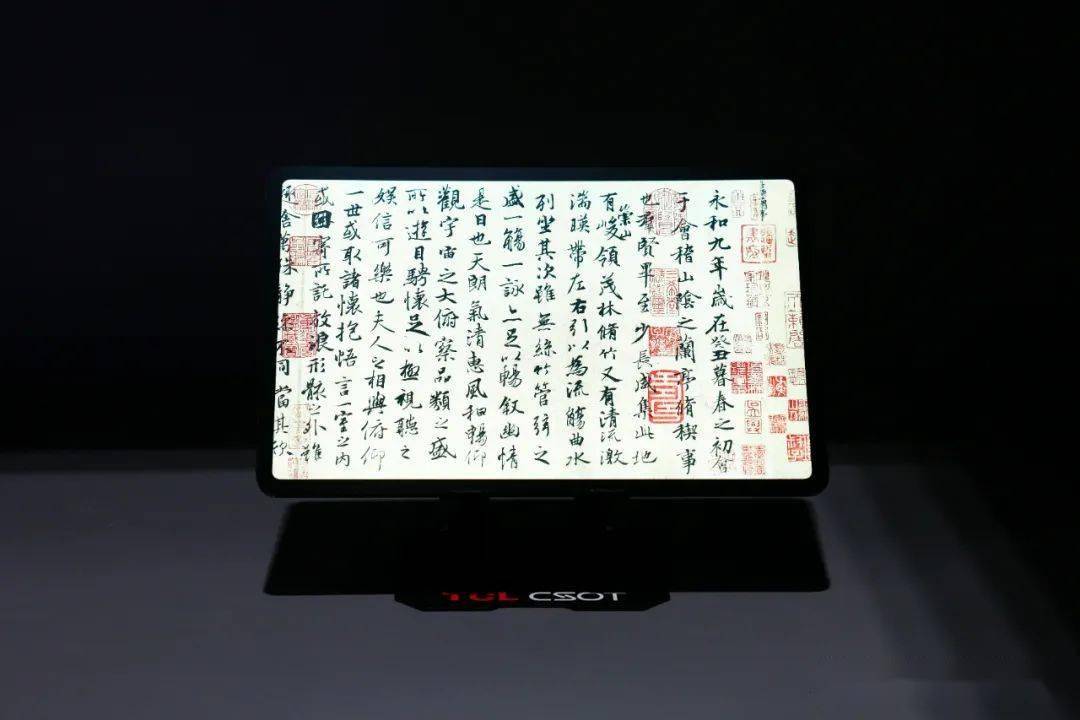 永和九年歲在癸丑暮春之初會
于會稽山陰之蘭亭脩稧事
也羣賢畢至少長咸集此地
有崇山峻領茂林脩竹又有清流激
湍暎帶左右引以為流觴曲水
列坐其次雖無絲竹管弦之
盛一觴一詠亦足以暢敘幽情
是日也天朗氣清惠風和暢仰
觀宇宙之大俯察品類之盛
所以遊目騁懷足以極視聽之
娛信可樂也夫人之相與俯仰
一世或取諸懷抱悟言一室之內
或因寄所託放浪形骸之外雖
趣舍萬殊靜躁不同當其欣
TCL CSOT